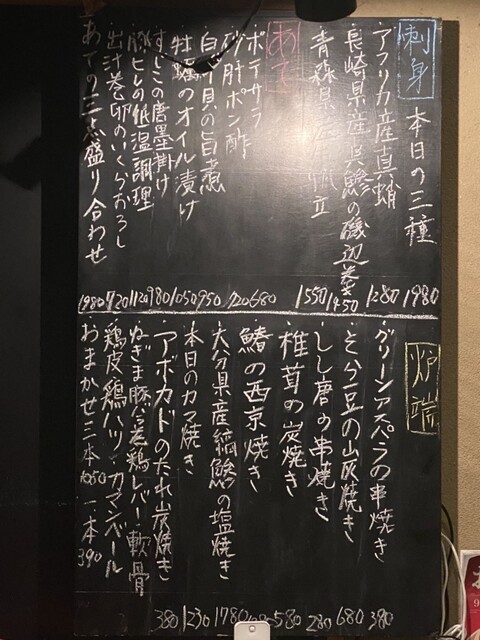 刺身
本日の三種 1980
アフリカ産真蛸 1280
長崎県産真鯵の磯辺巻き 1450
青森県 帆立 1550
あて
ポテサラ 680
砂肝ポン酢 720
白 貝の旨煮 950
牡蠣のオイル漬け 1050
すじこの唐墨掛け 980
豚ヒレの低温調理 1120
出汁巻卵のいくらおろし 1720
あての三点盛り合わせ 1980
炉端
グリーンアスパラの串焼き 380
そら豆の炭焼き 680
しし唐の串焼き 280
椎茸の炭焼き 580
鰆の西京焼き
大分県産縞鯵の塩焼き 1780
本日のカマ焼き 1230
アボカドのたれ炭焼き 380
ねぎま 豚バラ巻 鶏レバー 軟骨
鶏皮 鶏ハツ カマンベール
おまかせ三本1050 一本390